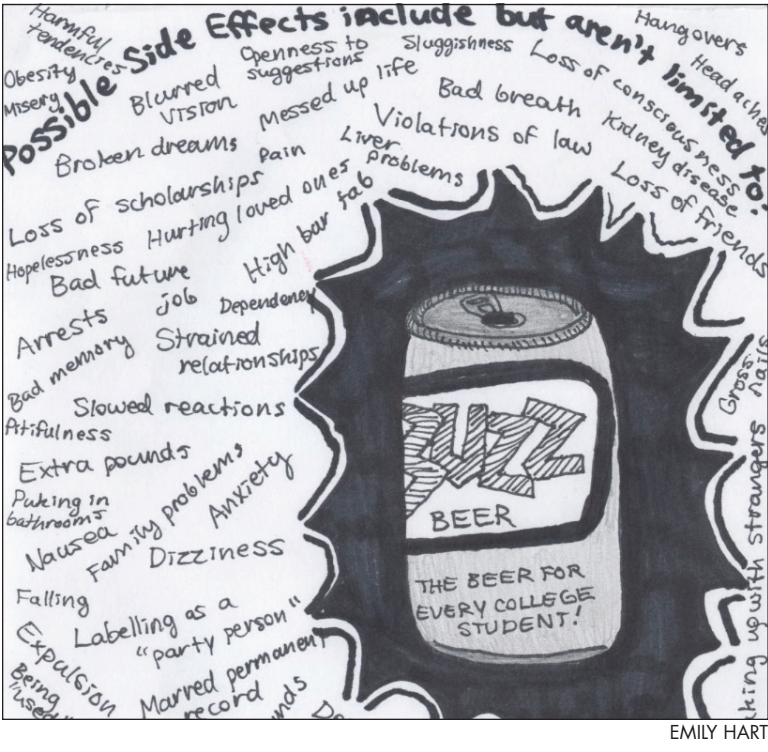 Possible Side Effects include but aren't limited to:
Harmful
tendencies
Obesity
Misery
Blurred
vision
Openness to
suggestions
Sluggishness
Loss of consciousness
Hangovers
Headaches
Broken dreams
Messed up life
Bad breath
Violations of law
Kidney disease
Loss of friends
Pain
Liver
problems
Loss of scholarships
Hurting loved ones
Hopelessness
Bad future
job
High bar tab
Arrests
Dependency
Bad memory
Strained
relationships
Slowed reactions
Pitifulness
Extra pounds
Puking in
bathrooms
Nausea
Family problems
Anxiety
Dizziness
Falling
Labelling as a
"party person"
Expulsion
Being
"used"
Marred permanent
record
Gross
nails
up with strangers
BUZZ
BEER
THE BEER FOR
EVERY COLLEGE
STUDENT!
EMILY HART